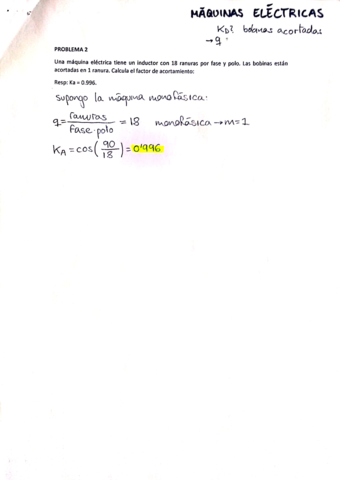 MÁQUINAS ELÉCTRICAS
KD? bobinas acortadas
→ q
PROBLEMA 2
Una máquina eléctrica tiene un inductor con 18 ranuras por fase y polo. Las bobinas están
acortadas en 1 ranura. Calcula el factor de acortamiento:
Resp: Ka = 0.996.
Supongo la máquina monofásica.
q = ranuras / Fase·polo = 18 monofásica → m=1
KA = cos(90/18) = 0'996